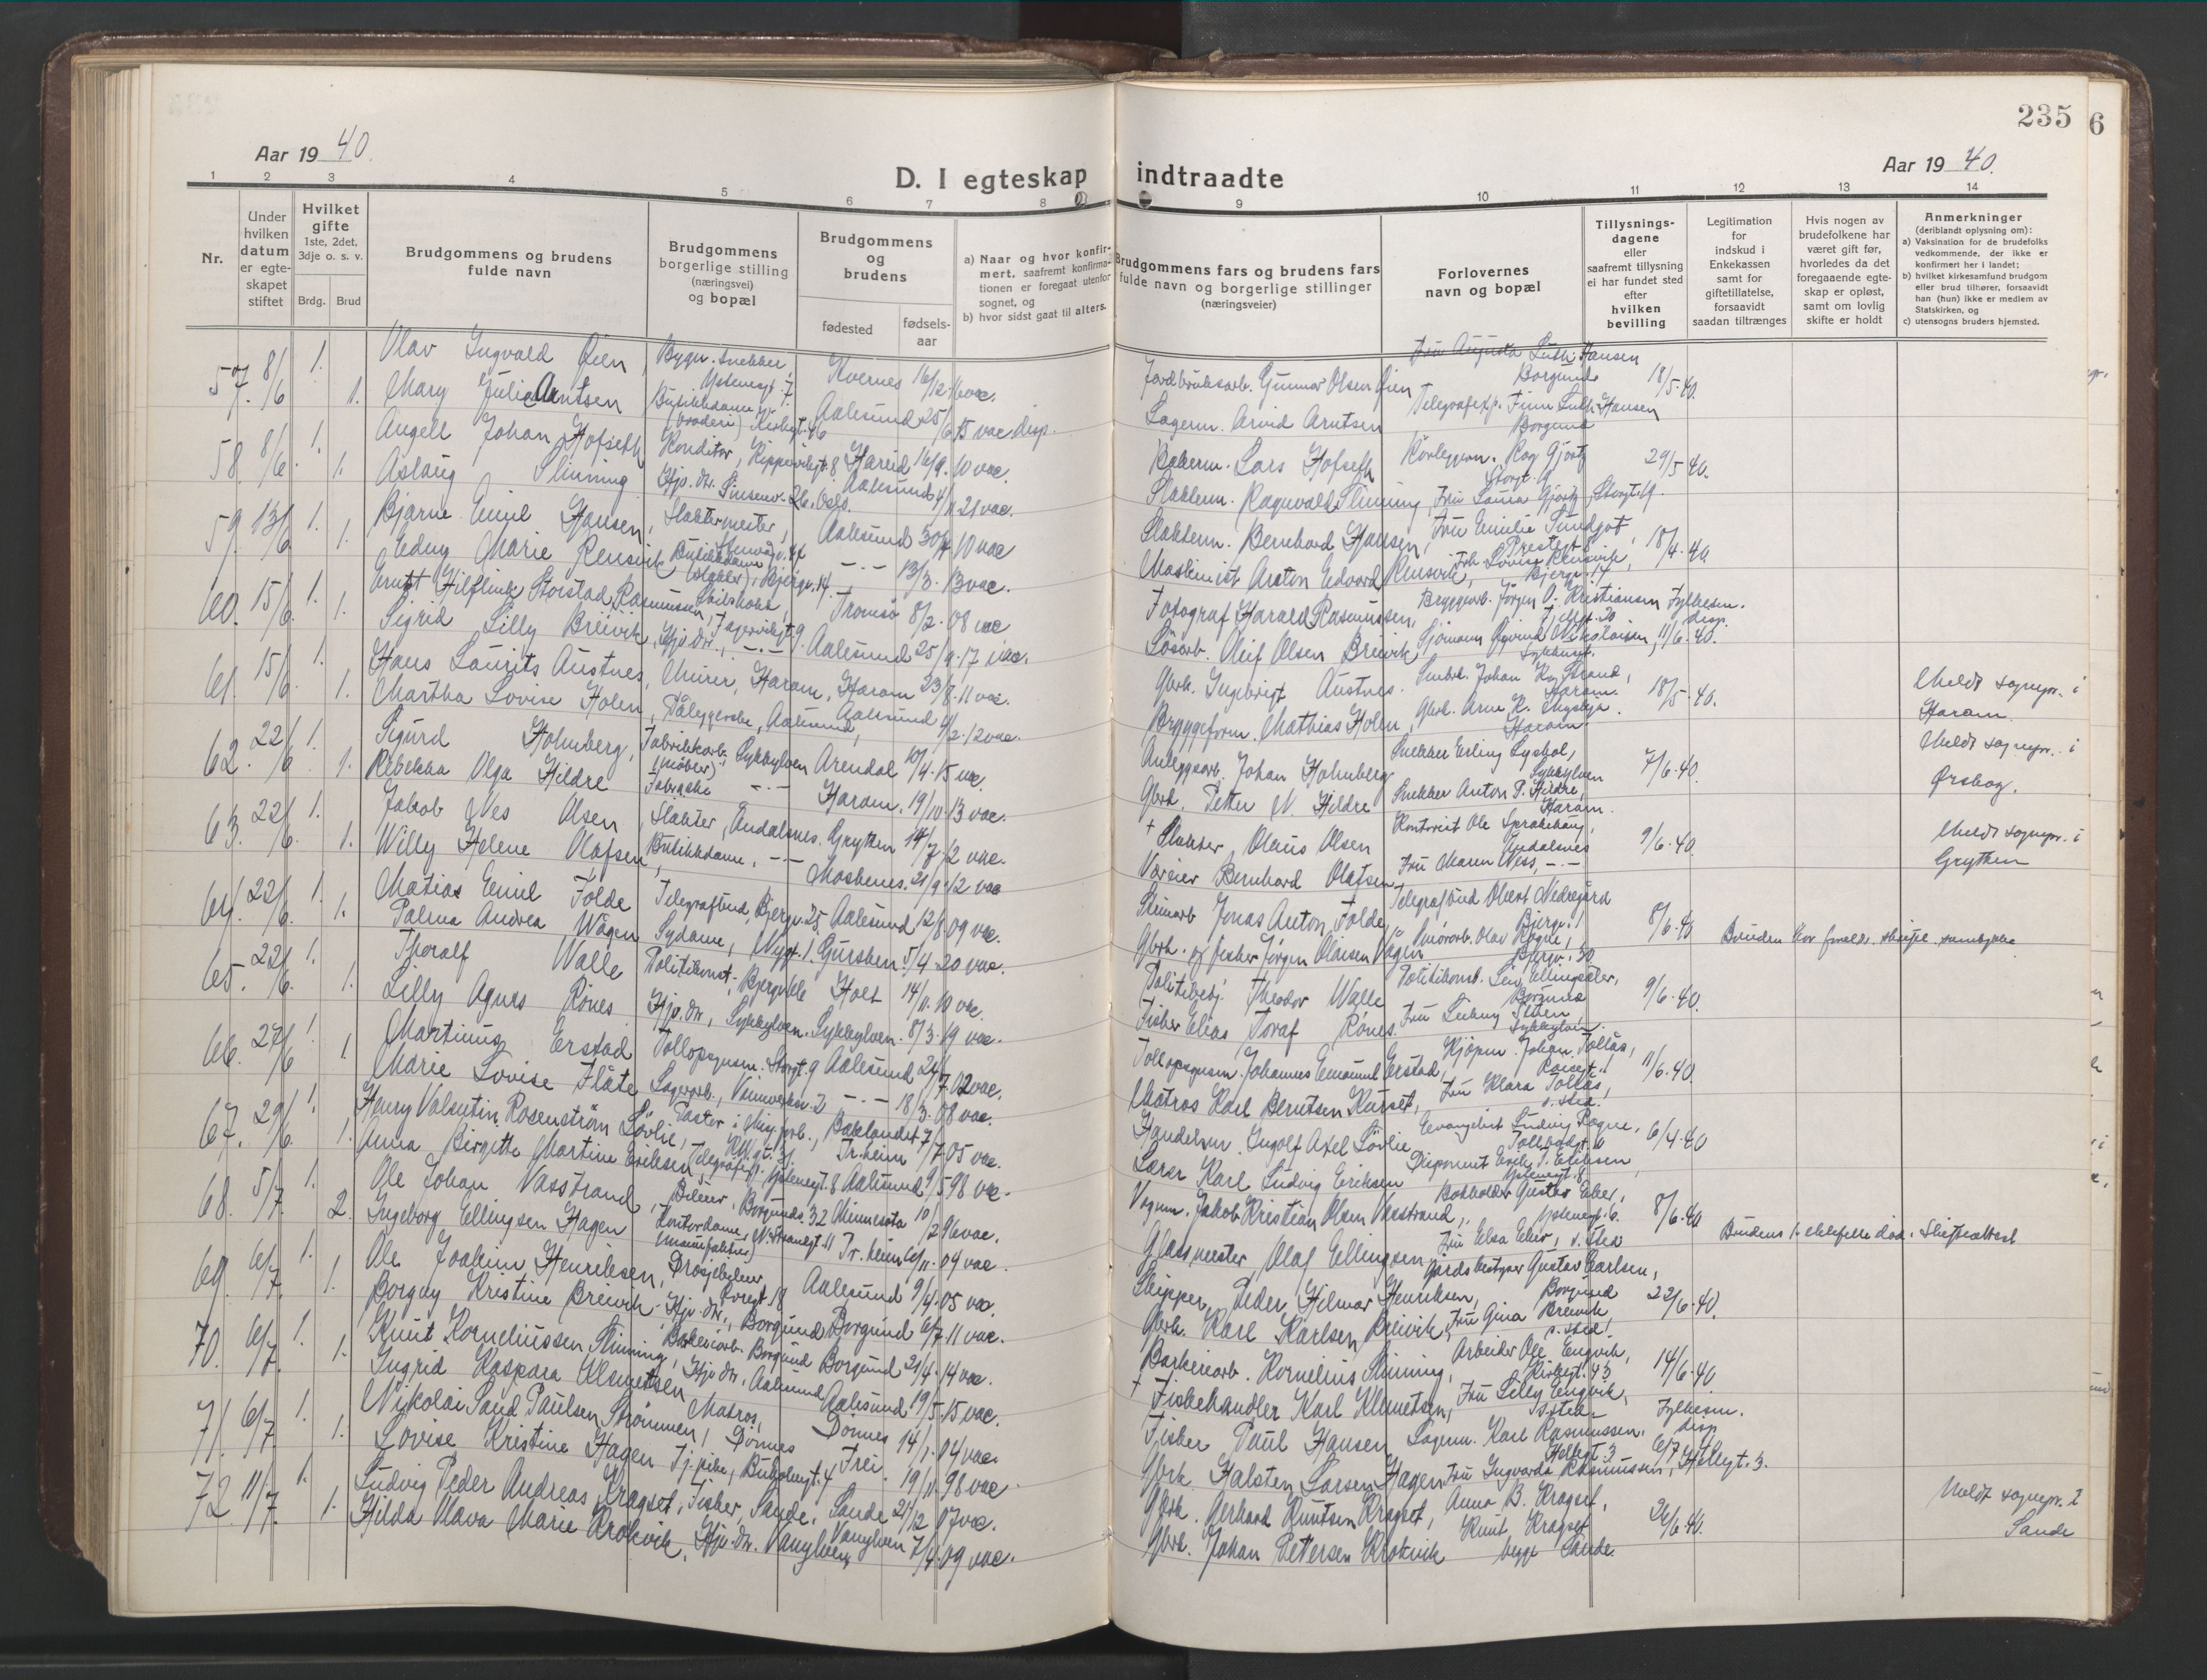 235
6
Aar 19 40.
D. I egteskap indtraadte
Aar 19 40.
1 2 3 4 5 6 7 8 9 10 11 12 13 14
Nr.
Under hvilken datum er egte-skapet stiftet
Hvilket gifte
1ste, 2det, 3dje o. s. v.
Brdg. Brud
Brudgommens og brudens fulde navn
Brudgommens borgerlige stilling (næringsvei) og bopæl
Brudgommens og brudens
fødested
fødsels-aar
a) Naar og hvor konfir-mert, saafremt konfirma-tionen er foregaat utenfor sognet, og
b) hvor sidst gaat til alters.
Brudgommens fars og brudens fars fulde navn og borgerlige stillinger (næringsveier)
Forlovernes navn og bopæl
Tillysnings-dagene eller saafremt tillysning ei har fundet sted efter hvilken bevilling
Legitimation for indskud i Enkekassen samt for giftetillatelse, forsaavidt saadan tiltrænges
Hvis nogen av brudefolkene har været gift før, hvorledes da det foregaaende egte-skap er opløst, samt om lovlig skifte er holdt
Anmerkninger
(deriblandt oplysning om):
a) Vaksination for de brudefolks vedkommende, der ikke er konfirmert her i landet;
b) hvilket kirkesamfund brudgom eller brud tilhører, forsaavidt han (hun) ikke er medlem av Statskirken, og
c) utensogns bruders hjemsted.
57. 8/6 1. Olav Ingvald Øien, Bygn. snekker, Ystenesgt. 7. Kvernes 16/2 16 vac. Jordbruksarb. Gunnar Olsen Øien Borgund 18/5-40.
1. Mary Julie Arntsen Butikkdame Kirkegt. 46 Aalesund 25/6 15 vac disp. Lagerm. Arvid Arntsen Borgund
58. 8/6. 1. Angell Johan Hofseth Konditor, Kippervikgt. 8 Hareid 16/9. 10 vac. Bakerm. Lars Hofseth Storgt. 9 29/5 40.
1. Aslaug Slinning Hjv. dtr. Sinsenv. 26, Oslo. Aalesund 4/11 21 vac. Slakterm. Ragnvald Slinning, Fru Laura Gjørtz, Storgt. 9.
59. 13/6 1. Bjarne Emil Hansen, Slaktermester, Aalesund 30/4 10 vac Slakterm. Bernhard Hansen, Fru Emilie Sundgot, 18/4-40.
1. Edny Marie Rensvik Butikkdame Bjergv. 14. -.- 13/3. 13 vac. Maskinist Anton Edvard Rensvik, Bjergv. 14
60. 15/6 1. Ernst Storstad Rasmussen, Skibskokk, Fagervikgt. 9. Tromsø 8/2. 08 vac Fotograf Harald Rasmussen, Bryggearb. Jørgen O. Kristiansen Fylkesm. disp. 11/6-40.
1. Sigrid Lilly Breivik, Hjv. dtr., -.- Aalesund 25/9. 17 vac. Løsarb. Leif Olsen Breivik Sjømann Øyvind Nikolaisen,
61. 15/6. 1. Hans Laurits Austnes, Murer, Haram, Haram 23/8. 11 vac. Gbrk. Ingebrigt Austnes. Snekk. Johan K. Strand, Haram. 18/5-40. Meldt sognepr. i Haram.
1. Martha Lovise Holen, Påleggerske, Aalesund, Aalesund 4/2. 12 vac. Bryggeform. Mathias Holen, Haram.
62. 22/6 1. Sigurd Holmberg, Fabrikkarb. (møbler) Sykkylven Arendal 10/4. 15 vac. Anleggsarb. Johan Holmberg Snekker Erling Lyshol, Sykkylven 7/6-40. Meldt sognepr. i Ørskog.
1. Rebekka Olga Hildre -.- Haram. 19/10. 13 vac. Gbrk. Petter N. Hildre Snekker Anton P. Hildre, Haram.
63. 22/6. 1. Jakob Nes Olsen, Slakter, Åndalsnes. Grytten 14/7. 12 vac. † Slakter Olaus Olsen Kontorist Ole Sprakehaug, Åndalsnes 9/6-40. Meldt sognepr. i Grytten
1. Willy Helene Olafsen, Butikkdame, -.- Moskenes. 21/9. 12 vac Værseier Bernhard Olafsen Fru Maren Wess, -.-
64. 22/6. 1. Matias Emil Folde Telegrafbud, Bjergv. 25 Aalesund 12/8 09 vac. Steinarb Jonas Anton Folde, Telegrafbud Olbert Nedregård Bjergv. 1 8/6-40 Bruden har foreld. skriftl. samtykke
1. Palma Andrea Wågen Sydame, Nygt. 1. Gursken 5/4-20 vac. Gbrk. og fisker Jørgen Olaisen Vågen Smørarb. Olav Rogne, Bjergv. 30
65. 22/6. 1. Thoralf Walle Politikonst. Bjergv. Holt 14/11. 10 vac. Politibetj. Theodor Walle Politikonst. Leiv Ellingsæter, Borgund 9/6-40.
1. Lilly Agnes Rønes Hjv. dtr., Sykkylven. Sykkylven. 8/3. 19 vac. Fisker Elias Toraf Rønes. Sykkylven.
66. 27/6 1. Martinus Erstad Tollopsynsm. Storgt. 9 Aalesund 24/7 02 vac. Tollopsynsm. Johannes Emanuel Erstad, Kjøpm. Johan Tollås, 11/6-40
1. Marie Lovise Flåte Lagerarb., -.- 18/3. 08 vac. Matros Karl Berntsen Kurset, Fru Klara Tollås, s. sted.
67. 29/6 1. Henry Valentin Rosenstrøm Løvlie, Pastor i Misj.forb., Baklandet Tr.heim 7/7. 05 vac. Handelsm. Ingolf Axel Løvlie Evangelist Ludvig Rogne, Tollbodgt. 6/4-40
1. Anna Birgitte Martine Eriksen Telegrafefp. Ystenesgt. 8 Aalesund 9/5 98 vac. Lærer Karl Ludvig Eriksen Disponent Erik T. Eriksen, Ystenesgt. 8
68. 5/7. 1. Ole Johan Vasstrand, Bileier, Borgundv. 32 Minnesota 10/2 96 vac. Vognm. Jakob Kristian Olsen Vasstrand, Bokholder Gustav Eker, Ystenesgt. 6. 8/6-40 Brudens 1. ektefelle død. Skifteattest
2. Ingeborg Ellingsen Hagen Kontordame, (manufaktur) N. Strandgt. 11 Tr.heim 6/11. 04 vac. Glassmester Olaf Ellingsen, Fru Elsa Eker, s. sted
69. 6/7. 1. Ole Joakim Henriksen, Drosjebileier, Aalesund 9/4. 05 vac. Skipper Peder Hilmar Henriksen, Gårdsbestyrer Gustav Carlsen, Borgund 22/6-40.
1. Borgny Kristine Breivik Hjv. dtr., Borgund Borgund 6/7 11 vac. Gbrk. Karl Karlsen Breivik, Fru Gina Breivik s. sted.
70. 6/7. 1. Knut Korneliussen Slinning, Borgund Borgund 21/4. 14 vac. Barkeriarb. Kornelius Slinning, Arbeider Ole Engvik, Kirkegt. 43 14/6-40
1. Ingrid Kaspara Klemetsen Hjv. dtr., Aalesund Aalesund 19/5. 15 vac. † Fiskehandler Karl Klemetsen, Fru Lilly Engvik, s. sted
71. 6/7. 1. Nikolai Sand Paulsen Strømmen, Matros, Dønnes Dønnes 14/1. 04 vac. Fisker Paul Hansen Lagerm. Karl Rasmussen, Hellegt. 3 Fylkesm. disp 6/7
1. Lovise Kristine Hagen Tj. pike, Bulvskgt. 4 Frei. 19/11. 98 vac Gbrk. Halsten Larsen Hagen Fru Ingvarda Rasmussen, Hellegt. 3.
72. 11/7. 1. Ludvig Peder Andreas Kragset, Fisker, Sande, Sande 21/12 07 vac. Gbrk. Gerhard Knutsen Kragset, Anna B. Kragset, 26/6-40. Meldt sognepr. i Sande
1. Hilda Olava Marie Krokvik, Hjv. dtr. Vanylven Vanylven 7/4. 09 vac. Gbrk. Johan Petersen Krokvik Knut Kragset begge Sande.